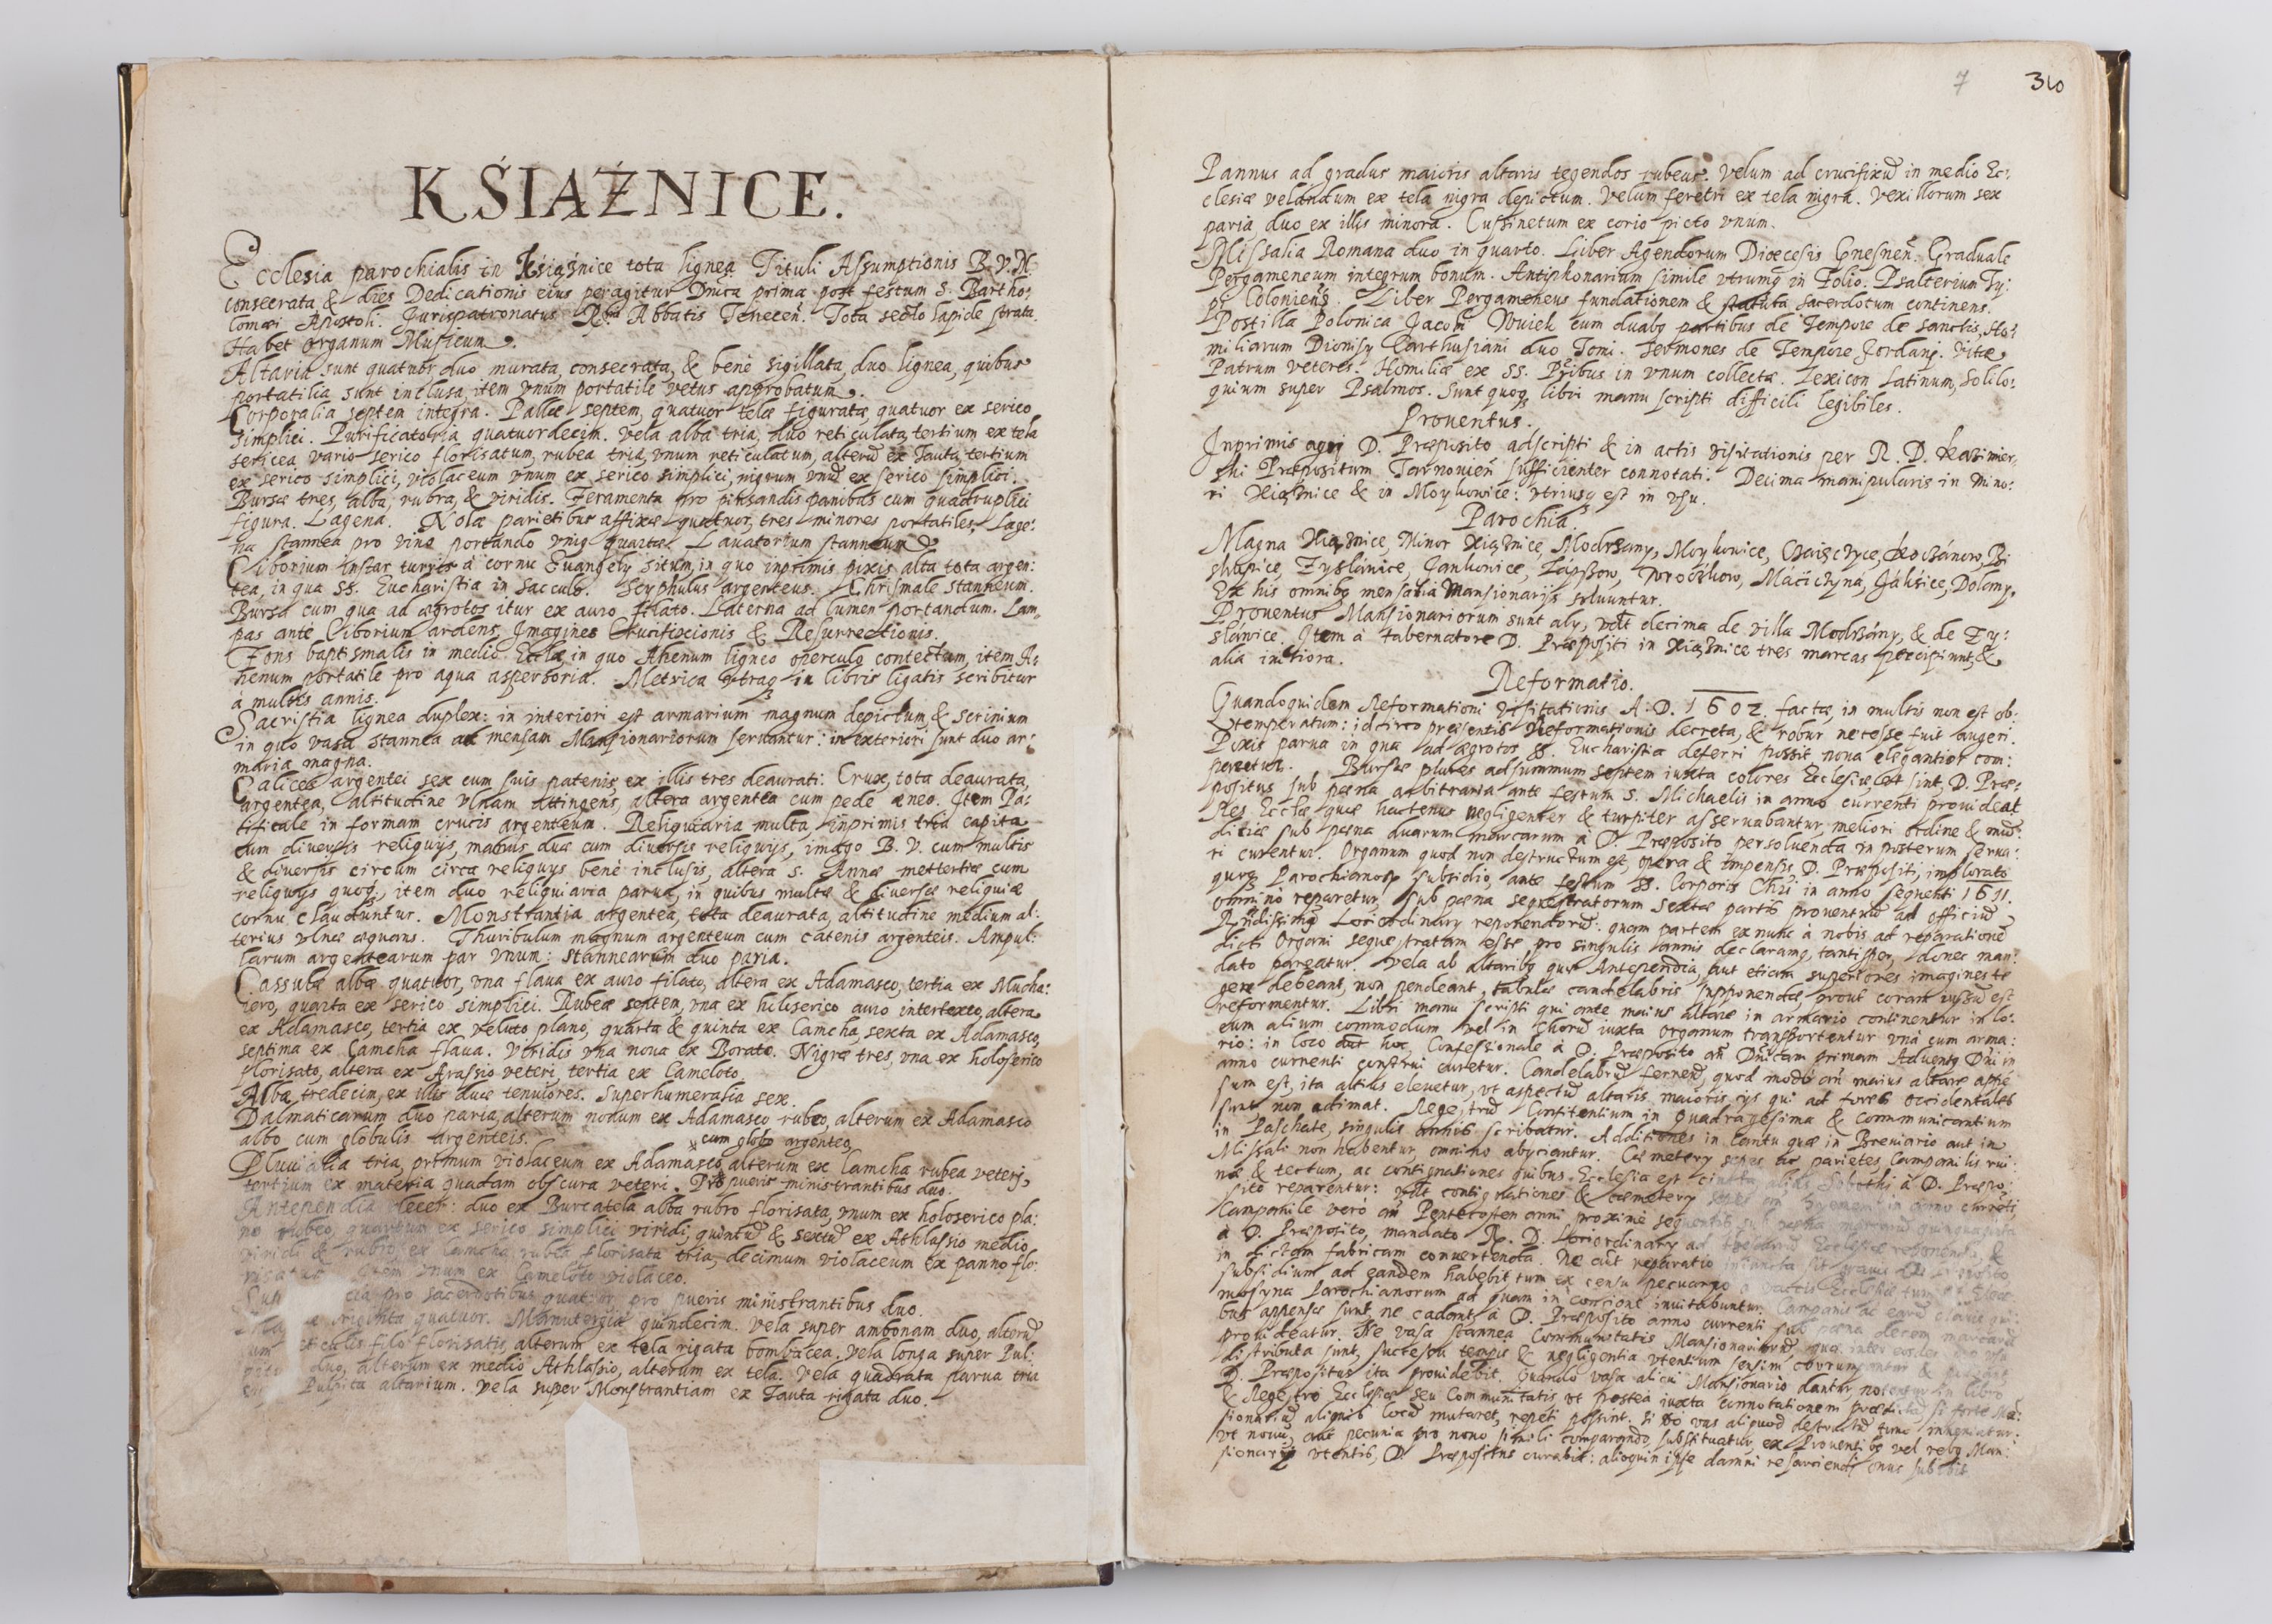 KŚIĄŹNICE.
Ecclesia parochialis in Kśiąźnice tota lignea Tituli Assumptionis B. V. M.
consecrata & dies Dedicationis eius peragitur Dnica prima post festum S. Bartho:
lomæi Apostoli. Jurispatronatus Rdi Abbatis Tenecen̄. Tota secto lapide strata.
Habet Organum Musicum.
Altaria sunt quatuor, duo murata, consecrata, & benè sigillata, duo lignea, quibus
portatilia sunt inclusa, item vnum portatile vetus approbatum.
Corporalia septem integra. Pallæ septem, quatuor telæ figuratæ, quatuor ex serico
simplici. Purificatoria quatuordecim. Vela alba tria, duo reticulata, tertium ex tela
sericea vario serico florisatum, rubea tria, vnum reticulatum, alterū ex Tauta, tertium
ex serico simplici, violaceum vnum ex serico simplici, nigrum vnū ex serico simplici.
Bursæ tres, alba, rubra, & viridis. Feramenta pro pinsandis panibus cum quadruplici
figura. Lagena. Nolæ parietibus affixæ quatuor, tres minores portatiles. Lage:
na stannea pro vino portando vniꝰ quartæ. Lauatorium stanneum.
Ciborium instar turris à cornu Euangelÿ situm, in quo inprimis pixis alta tota argen:
tea, in qua SS. Eucharistia in Sacculo. Scyphulus argenteus. Chrismale stanneum.
Bursa cum qua ad ægrotos itur ex auro filato. Laterna ad lumen portandum. Lam:
pas ante Ciborium ardens. Imagines Crucifixionis & Resurrectionis.
Fons baptismalis in medio Ecclæ, in quo Ahenum ligneo operculo contectum, item A:
henum portatile pro aqua aspersoria. Metrica vtraqꝫ in libris ligatis scribitur
à multis annis.
Sacristia lignea duplex: in interiori est armarium magnum depictum, & scrinium
in quo vasa stannea ad mensam Mansionariorum seruantur: in exteriori sunt duo ar:
maria magna.
Calices argentei sex cum suis patenis, ex illis tres deaurati. Crux, tota deaurata,
argentea, altitudine vlnam attingens, altera argentea cum pede æneo. Item Pa:
cificale in formam crucis argenteum. Reliquiaria multa, inprimis tria capita
cum diuersis reliquÿs, manus duæ cum diuersis reliquÿs, imago B. V. cum multis
& diuersis circum circa reliquÿs benè inclusis, altera S. Annæ mettertiæ cum
reliquÿs quoqꝫ, item duo reliquiaria parua, in quibus multæ & diuersæ reliquiæ
cornu clauduntur. Monstrantia argentea, tota deaurata, altitudine medium al:
terius vlnæ æquans. Thuribulum magnum argenteum cum catenis argenteis. Ampul:
larum argentearum par vnum: stannearum duo paria.
Cassulæ albæ quatuor, vna flaua ex auro filato, altera ex Adamasco, tertia ex Mucha:
iero, quarta ex serico simplici. Rubeæ septem, vna ex holoserico auro intertexto, altera
ex Adamasco, tertia ex veluto plano, quarta & quinta ex Camcha, sexta ex Adamasco,
septima ex Camcha flaua. Viridis vna noua ex Borato. Nigræ tres, vna ex holoserico
florisato, altera ex Arassio veteri, tertia ex Cameloto.
Albæ tredecim, ex illis duæ tenuiores. Superhumeralia sex.
Dalmaticarum duo paria, alterum nouum ex Adamasco rubeo, alterum ex Adamasco
albo cum globulis argenteis. cum globo argenteo,
Pluuialia tria, primum violaceum ex Adamasco, alterum ex Camcha rubea veteri,
tertium ex materia quadam obscura veteri. Pro pueris ministrantibus duo.
Antependia decem: duo ex Burcatela alba rubro florisata, vnum ex holoserico pla:
no rubeo, quartum ex serico simplici viridi, quintū & sextū ex Athlasio medio
viridi & rubro, ex Camcha rubea florisata tria, decimum violaceum ex panno flo:
item vnum ex Cameloto violaceo.
pro sacerdotibus quatuor, pro pueris ministrantibus duo.
triginta quatuor. Manutergia quindecim. Vela super ambonam duo, alterū
filo florisatis, alterum ex tela rigata bombacea. Vela longa super Pul:
duo, alterum ex medio Athlasio, alterum ex tela. Vela quadrata parua tria
Pulpita altarium. Vela super Monstrantiam ex Tauta rigata duo.
7 310
Pannus ad gradus maioris altaris tegendos rubeus. Velum ad crucifixū in medio Ec:
clesiæ velandum ex tela nigra depictum. Velum feretri ex tela nigra. Vexillorum sex
paria, duo ex illis minora. Cussinetum ex corio picto vnum.
Missalia Romana duo in quarto. Liber Agendorum Diœcesis Gnesnen̄. Graduale
Pergameneum integrum bonum. Antiphonarium simile vtrumqꝫ in Folio. Psalterium Ty:
pi Coloniens̄. Liber Pergameneus fundationem & statuta sacerdotum continens.
Postilla Polonica Jacobi Wuiek cum duabꝫ partibus de Tempore de sanctis, Ho:
miliarum Dionisÿ Carthusiani duo Tomi. Sermones de Tempore Jordani. Vitæ
Patrum veteres. Homiliæ ex SS. Pribus in vnum collectæ. Lexicon Latinum, Solilo:
quium super Psalmos. Sunt quoqꝫ libri manu scripti difficili legibiles.
Prouentus.
Inprimis agri D. Præposito adscripti & in actis visitationis per R. D. Kazimier:
ski Præpositum Tarnouien̄ sufficienter connotati. Decima manipularis in Mino:
ri Xiąźnice & in Moykowice: vtriusqꝫ est in vsu.
Parochia.
Magna Xiąźnice, Minor Xiąźnice, Modrzany, Moykowice, Kochánow, Bi
skupice, Zysławice, Jankowice, Łapszow, Máciczyna, Jáksice, Dolany.
Ex his omnibꝫ mensalia Mansionarÿs soluuntur.
Prouentus Mansionariorum sunt alÿ, vᵭlt decima de villa Modrzány, & de Zy:
sławice. Item à tabernatore D. Præpositi in Xiąźnice tres marcas percipiunt, &
alia
Reformatio.
Quandoquidem Reformationi visitationis A. D. 1602. factæ, in multis non est ob:
temperatum: idcirco præsentis Reformationis decreta, & robur necesse fuit augeri.
Pixis parua in qua ad ægrotos SS. Eucharistia deferri possit noua elegantior com:
paretur. Bursæ plures ad summum septem iuxta colores Ecclesiæ vt sint, D. Præ:
positus sub pœna arbitraria ante festum S. Michaelis in anno currenti prouideat.
Res Ecclæ quæ hactenus negligenter & turpiter asseruabantur, meliori ordine & mū:
ditiæ sub pœna duarum marcarum à D. Præposito persoluenda in posterum serua:
ri curentur. Organum quod non destructum est, opera & impensis D. Præpositi, implorato
quoqꝫ Parochianorꝫ subsidio, ante festum SS. Corporis Chri in anno sequenti 1611.
omnino reparetur, sub pœna sequestratorum sextæ partis prouentuū ad officiū
Rndissimi Loci ordinarÿ reponendorū. quam partem ex nunc à nobis ad reparationē
dicti Organi sequestratam esse pro singulis annis declaramꝰ, tantisper, donec man:
dato pareatur. Vela ab altaribꝫ quæ Antependia, aut etiam superiores imagines te
gere debeant, non pendeant, tabulæ candelabris supponendæ, prout coram visum est
reformentur. Libri manu scripti qui ante maius altare in armario continentur in lo:
cum alium commodum vel in chorū iuxta organum transportentur vnà cum arma:
rio: in loco hoc, Confessionale à D. Præposito an̄ Dn̄icam primam Aduentꝰ Dn̄i in
anno currenti construi curetur. Candelabrū ferreū, quod modo an̄ maius altare appē
sum est, ita altiùs eleuetur, vt aspectū altaris maioris ijs qui ad fores occidentales
sunt non adimat. Regestrū Confitentium in Quadragesima & communicantium
in Paschate, singulis annis scribatur. Additiones in cantu quæ in Breuiario aut in
Missali non habentur, omnino abÿciantur. Cæmeterÿ sepes ac parietes Campanilis rui
na & tectum, ac contignationes quibus Ecclesia est cincta, aliàs Sobothi à D. Præpo:
sito reparentur: vᵭlt contignationes & cæmeterÿ sepes an̄ hyemem in anno currēti,
Campanile verò an̄ Pentecosten anni proximè sequentis sub pœna marcarū quinquaginta
à D. Præposito, mandato R. D. Loci ordinarÿ ad thesaurū Ecclesiæ reponenda, &
in dictam fabricam conuertenda. Ne aūt reparatio iniuncta sit grauis D. Præposito
subsidium ad eandem habebit tum ex censu pecuario à vaccis Ecclesiæ tum ex Elee:
mosyna Parochianorum ad quam in concione inuitabuntur. Campanis ac earū clauis qui:
bus appensæ sunt, ne cadant, à D. Præposito anno currenti sub pœna decem marcarū
prouideatur. Ne vasa stannea Communitatis Mansionariorū, quæ inter eosdem pro vsu
distributa sunt, successu tempis & negligentia vtentium sensim corrumpantur & pereant,
D. Præpositus ita prouidebit. Quando vasa alicui Mansionario dantur, notentur in libro
& Regestro Ecclesiæ seu Communitatis, vt postea iuxta connotationem prædictā si forte Mā:
sionariū aliquis locū mutaret, repeti possint. Si vo vas aliquod destructū
vt nouū, aut pecunia pro nouo simili comparando substituatur, ex Prouentibꝫ vel rebꝫ Man:
sionarÿ vtentis, D. Præpositus curabit: alioquin ipse damni resarciendi onus subibit.